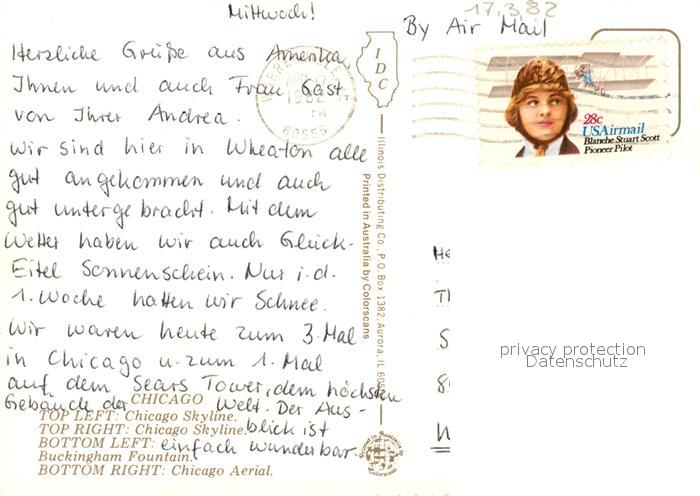 Mittwoch!
17.3.82
By Air Mail
Herzliche Grüße aus Amerika
Ihnen und auch Frau Gast
von Ihrer Andrea.
Wir sind hier in Wheaton alle
gut angekommen und auch
gut untergebracht. Mit dem
Wetter haben wir auch Glück-
Eitel Sonnenschein. Nur i.d.
1. Woche hatten wir Schnee.
Wir waren heute zum 3. Mal
in Chicago u. zum 1. Mal
auf dem Sears Tower, dem höchsten
Gebäude der Welt. Der Aus-
blick ist
einfach wunderbar.
CHICAGO
TOP LEFT: Chicago Skyline.
TOP RIGHT: Chicago Skyline.
BOTTOM LEFT:
Buckingham Fountain.
BOTTOM RIGHT: Chicago Aerial.
IDC
1982
PM
60555
Illinois Distributing Co., P.O. Box 1382, Aurora, IL
Printed in Australia by Colorscans
28c
USAirmail
Blanche Stuart Scott
Pioneer Pilot
privacy protection
Datenschutz